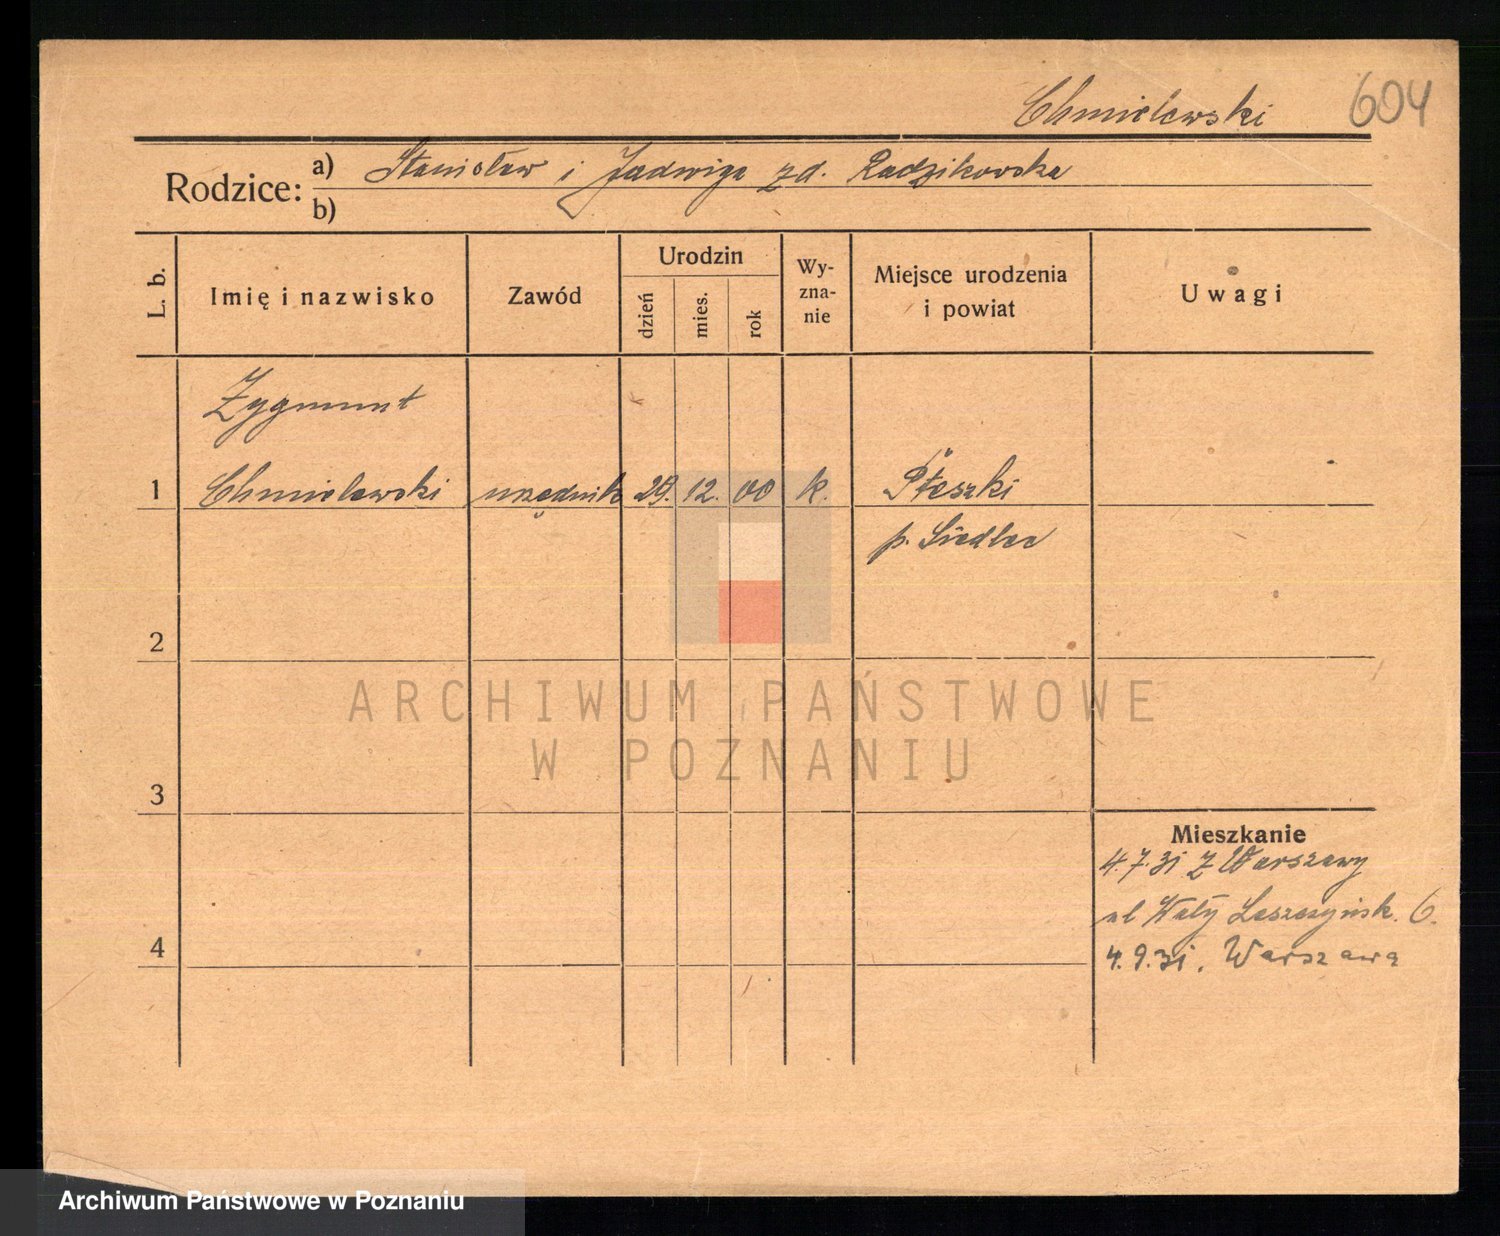 Chmielewski 604
Rodzice: a) Stanisław i Jadwiga zd. Radzikowska
b)
L. b. Imię i nazwisko Zawód Urodzin dzień mies. rok Wy-zna-nie Miejsce urodzenia i powiat Uwagi
Zygmunt
1 Chmielewski urzędnik 29. 12. 00 k.
p. Siedlce
2
ARCHIWUM PAŃSTWOWE
W POZNANIU
3
Mieszkanie
4.7.31 z Warszawy
ul Wały Leszczyńsk. 6.
4 4.9.31. Warszawa
Archiwum Państwowe w Poznaniu